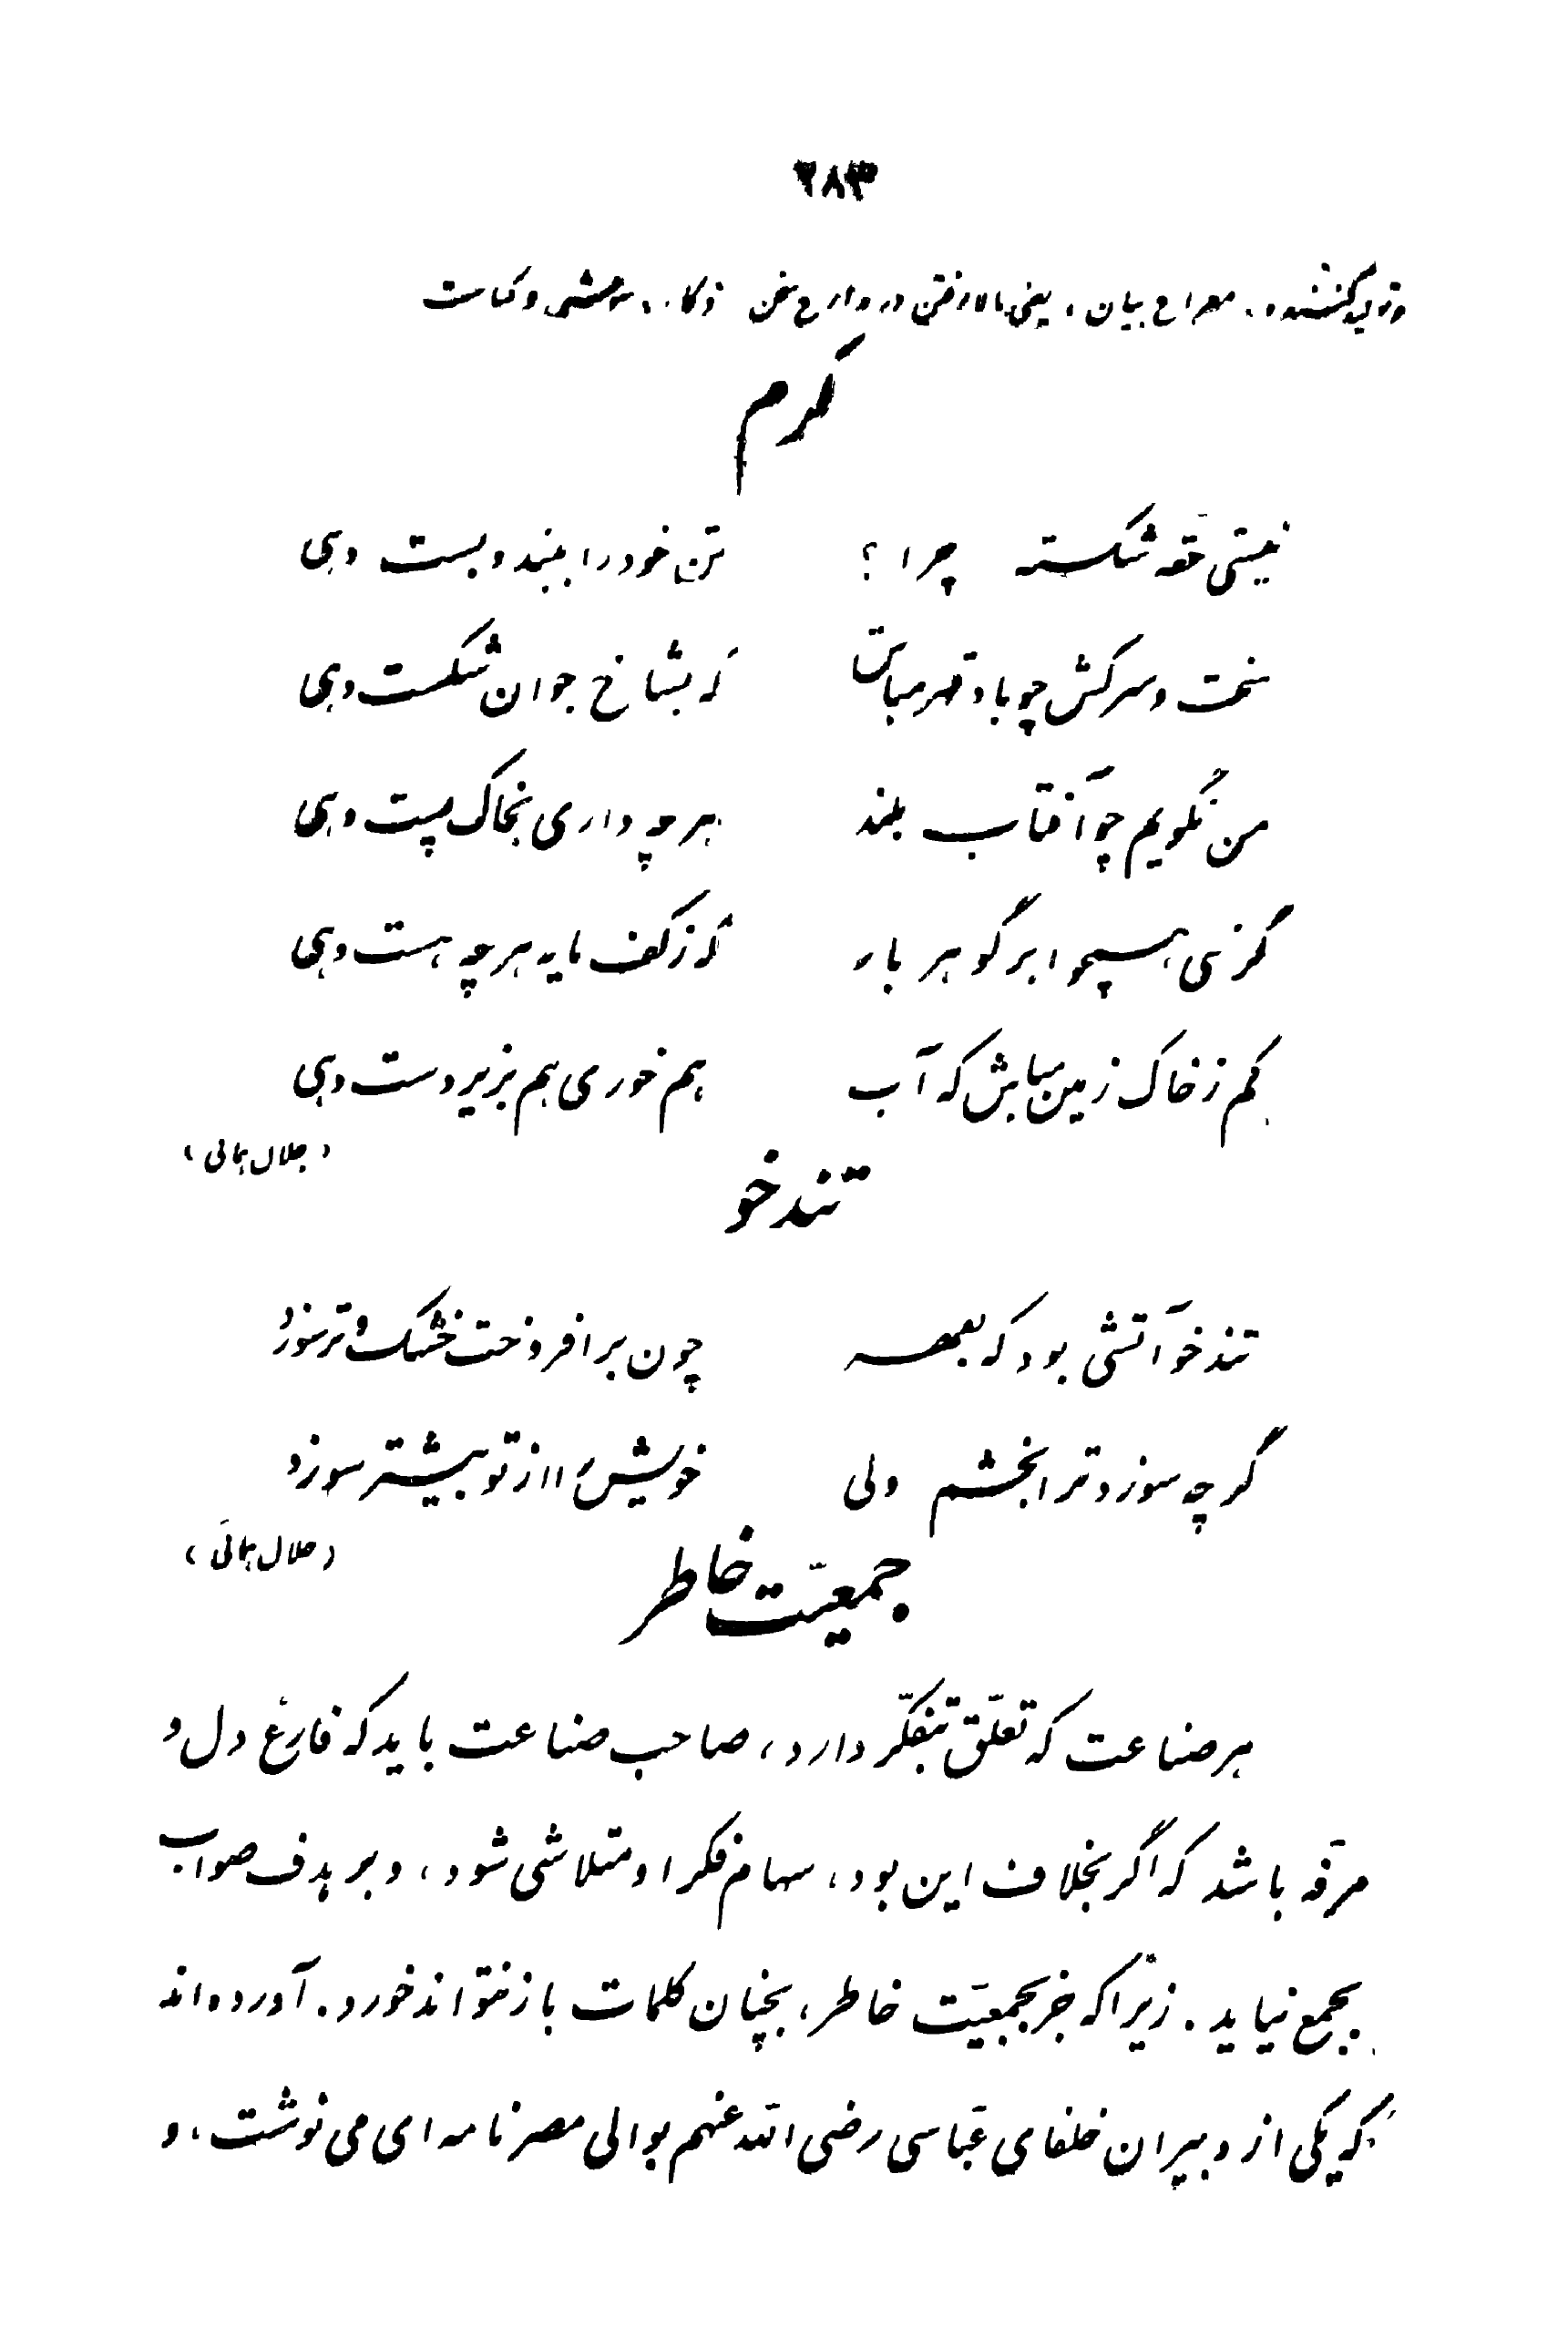 ۲۸۳
وتولیدکننده. معراج بیان، یعنی بالارفتن در مدارج سخن ذکاء. تیزهوشی وکیاست
کرم
نیستی حقّه شکسته چرا؟ تن خود را ببند و بست دهی
سخت و سرکش چو باد قهر مباش که بشاخ جوان شکست دهی
من نگویم چو آفتاب بلند هرچه داری بخاک پست دهی
گر نئی همچو ابر گوهربار که ز کف مایه هرچه هست دهی
کم ز خاک زمین مباش که آب هم خوری هم بزیردست دهی
(جلال همائی)
تندخو
تندخو آتشی بود که بعمد چون برافروخت خشک و تر سوزد
گرچه سوزد ترا بخشم ولی خویش را از تو بیشتر سوزد
(جلال همائی)
جمعیّت خاطر
هر صناعت که تعلّق بتفکّر دارد، صاحب صناعت باید که فارغ دل و
مرفّه باشد که اگر بخلاف این بود، سهام فکر او متلاشی شود، و بر هدف صواب
بجمع نیاید. زیرا که جز بجمعیّت خاطر، بچنان کلمات باز نتواند خورد. آورده‌اند
که یکی از دبیران خلفای عبّاسی رضی الله عنهم بوالی مصر نامه‌ای می‌نوشت، و